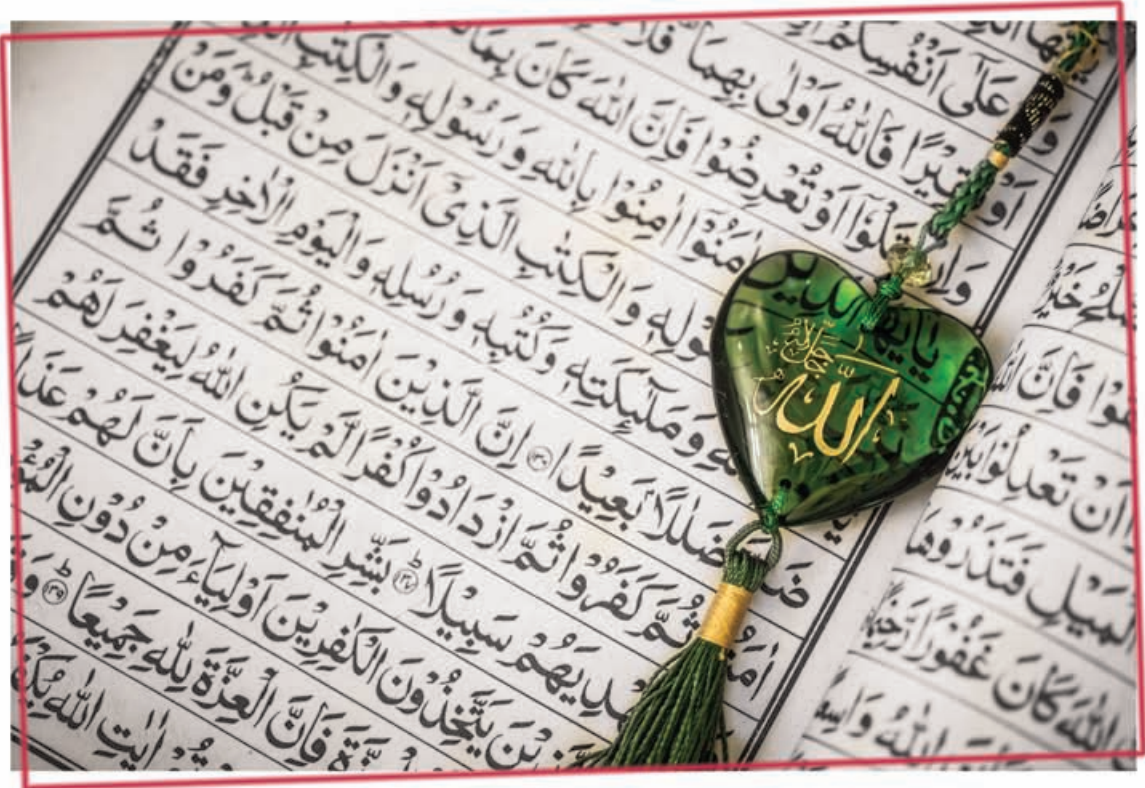 عَلٰۤى اَنْفُسِكُمْ
فَاللّٰهُ اَوْلٰى بِهِمَا فَلَا
اَوْ تُعْرِضُوْا فَاِنَّ اللّٰهَ كَانَ بِمَا
يٰۤاَيُّهَا الَّذِيْنَ اٰمَنُوْۤا اٰمِنُوْا بِاللّٰهِ وَرَسُوْلِهٖ وَالْكِتٰبِ
وَالْكِتٰبِ الَّذِىْۤ اَنْزَلَ مِنْ قَبْلُ وَمَنْ
وَمَلٰٓئِكَتِهٖ وَكُتُبِهٖ وَرُسُلِهٖ وَالْيَوْمِ الْاٰخِرِ فَقَدْ
ضَلٰلًاۢ بَعِيْدًا ۝۱۳۶ اِنَّ الَّذِيْنَ اٰمَنُوْا ثُمَّ كَفَرُوْا ثُمَّ
ثُمَّ كَفَرُوْا ثُمَّ ازْدَادُوْا كُفْرًا لَّمْ يَكُنِ اللّٰهُ لِيَغْفِرَ لَهُمْ
سَبِيْلًا ۝۱۳۷ بَشِّرِ الْمُنٰفِقِيْنَ بِاَنَّ لَهُمْ
يَتَّخِذُوْنَ الْكٰفِرِيْنَ اَوْلِيَآءَ مِنْ دُوْنِ
فَاِنَّ الْعِزَّةَ لِلّٰهِ جَمِيْعًا ۝۱۳۹
اٰيٰتِ اللّٰهِ
اللّٰه
جل جلاله
فَاِنَّ
اَنْ تَعْدِلُوْا بَيْنَ
الْمَيْلِ فَتَذَرُوْهَا
اللّٰهَ كَانَ غَفُوْرًا
اللّٰهُ